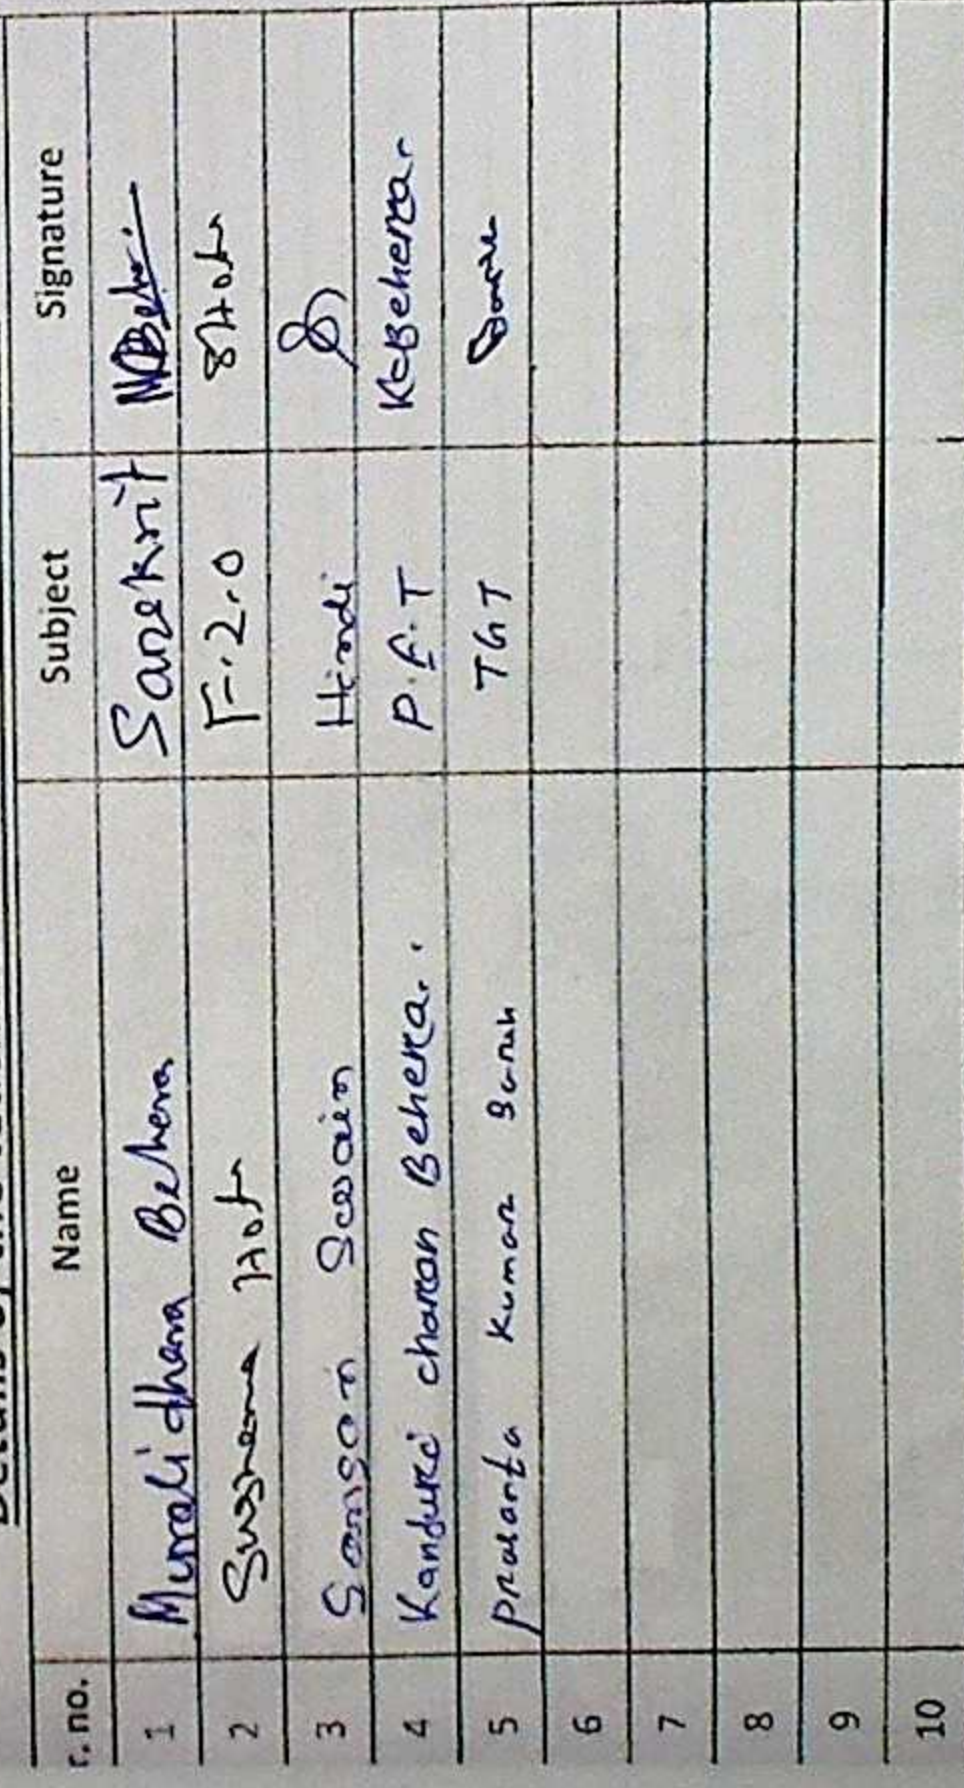 r. no. Name Subject Signature
1 Muralidhara Behera Sanskrit MBehera
2 Sushama Hota F.2.0 SHota
3 Samson Swain Hindi
4 Kanduri charan Behera. P.E.T KcBehera.
5 Prasanta Kumar TGT
6
7
8
9
10